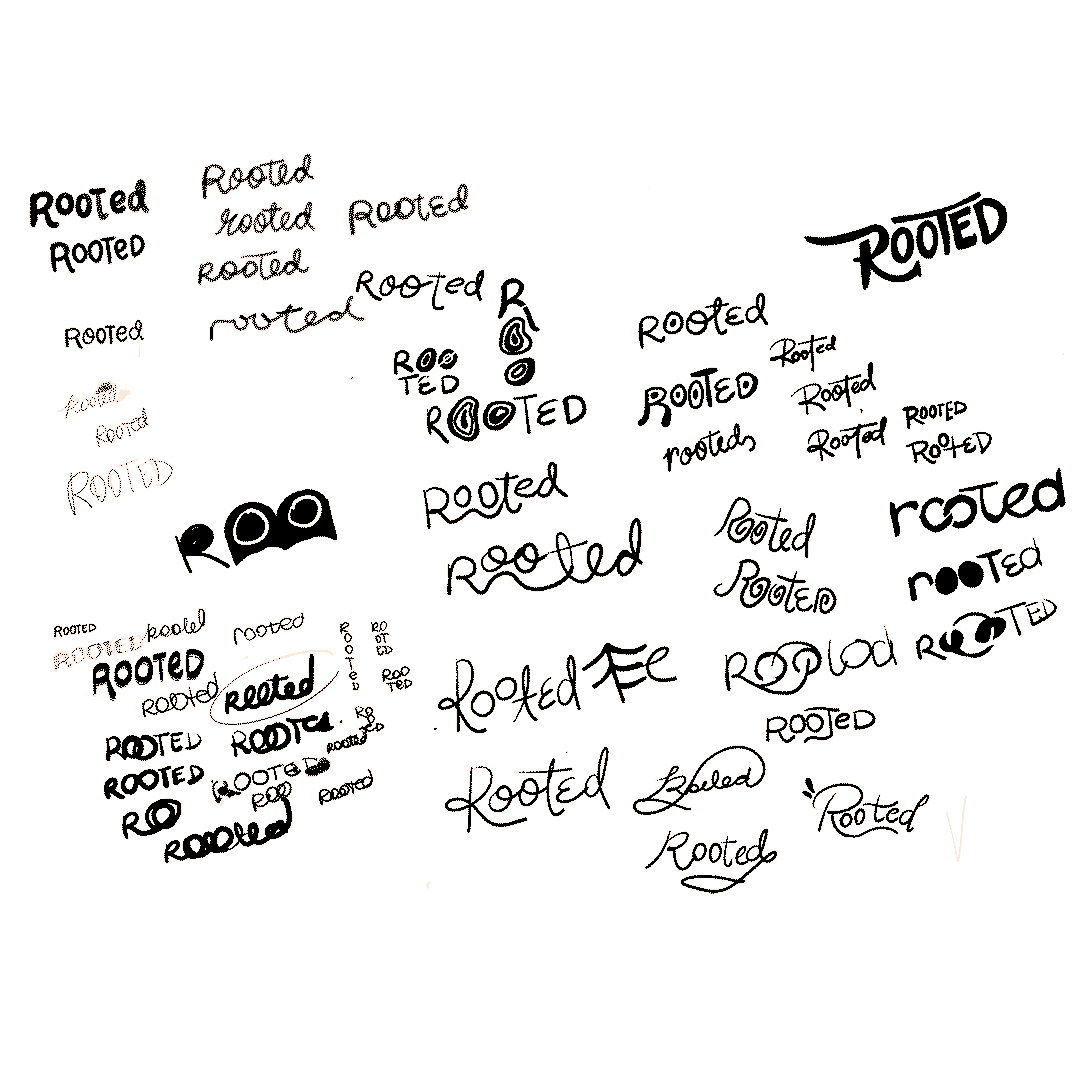 Rooted
ROOTED
Rooted
rooted
Rooted
ROOTED
rooted
Rooted
Rooted
Rooted
ROOTED
ROOTED
ROO
TED
ROOTED
R
ROOTED
Rooted
ROOTED
rooteds
Rooted
Rooted
Rooted
ROOTED
ROOTED
ROO
Rooted
Rooted
Rooted
ROOTED
rooted
rooTEd
ROOTED
ROOTED
ROOTED
rooted
ROOTED
Rooted
rooted
ROOTED
ROOTED
ROOTED
ROOTED
RO
ROO
Rooted
Rooted
R
O
O
T
E
D
RO
OT
ED
ROO
TED
Rooted
Rooted
ROOTED
Rooted
Rooted
Rooted